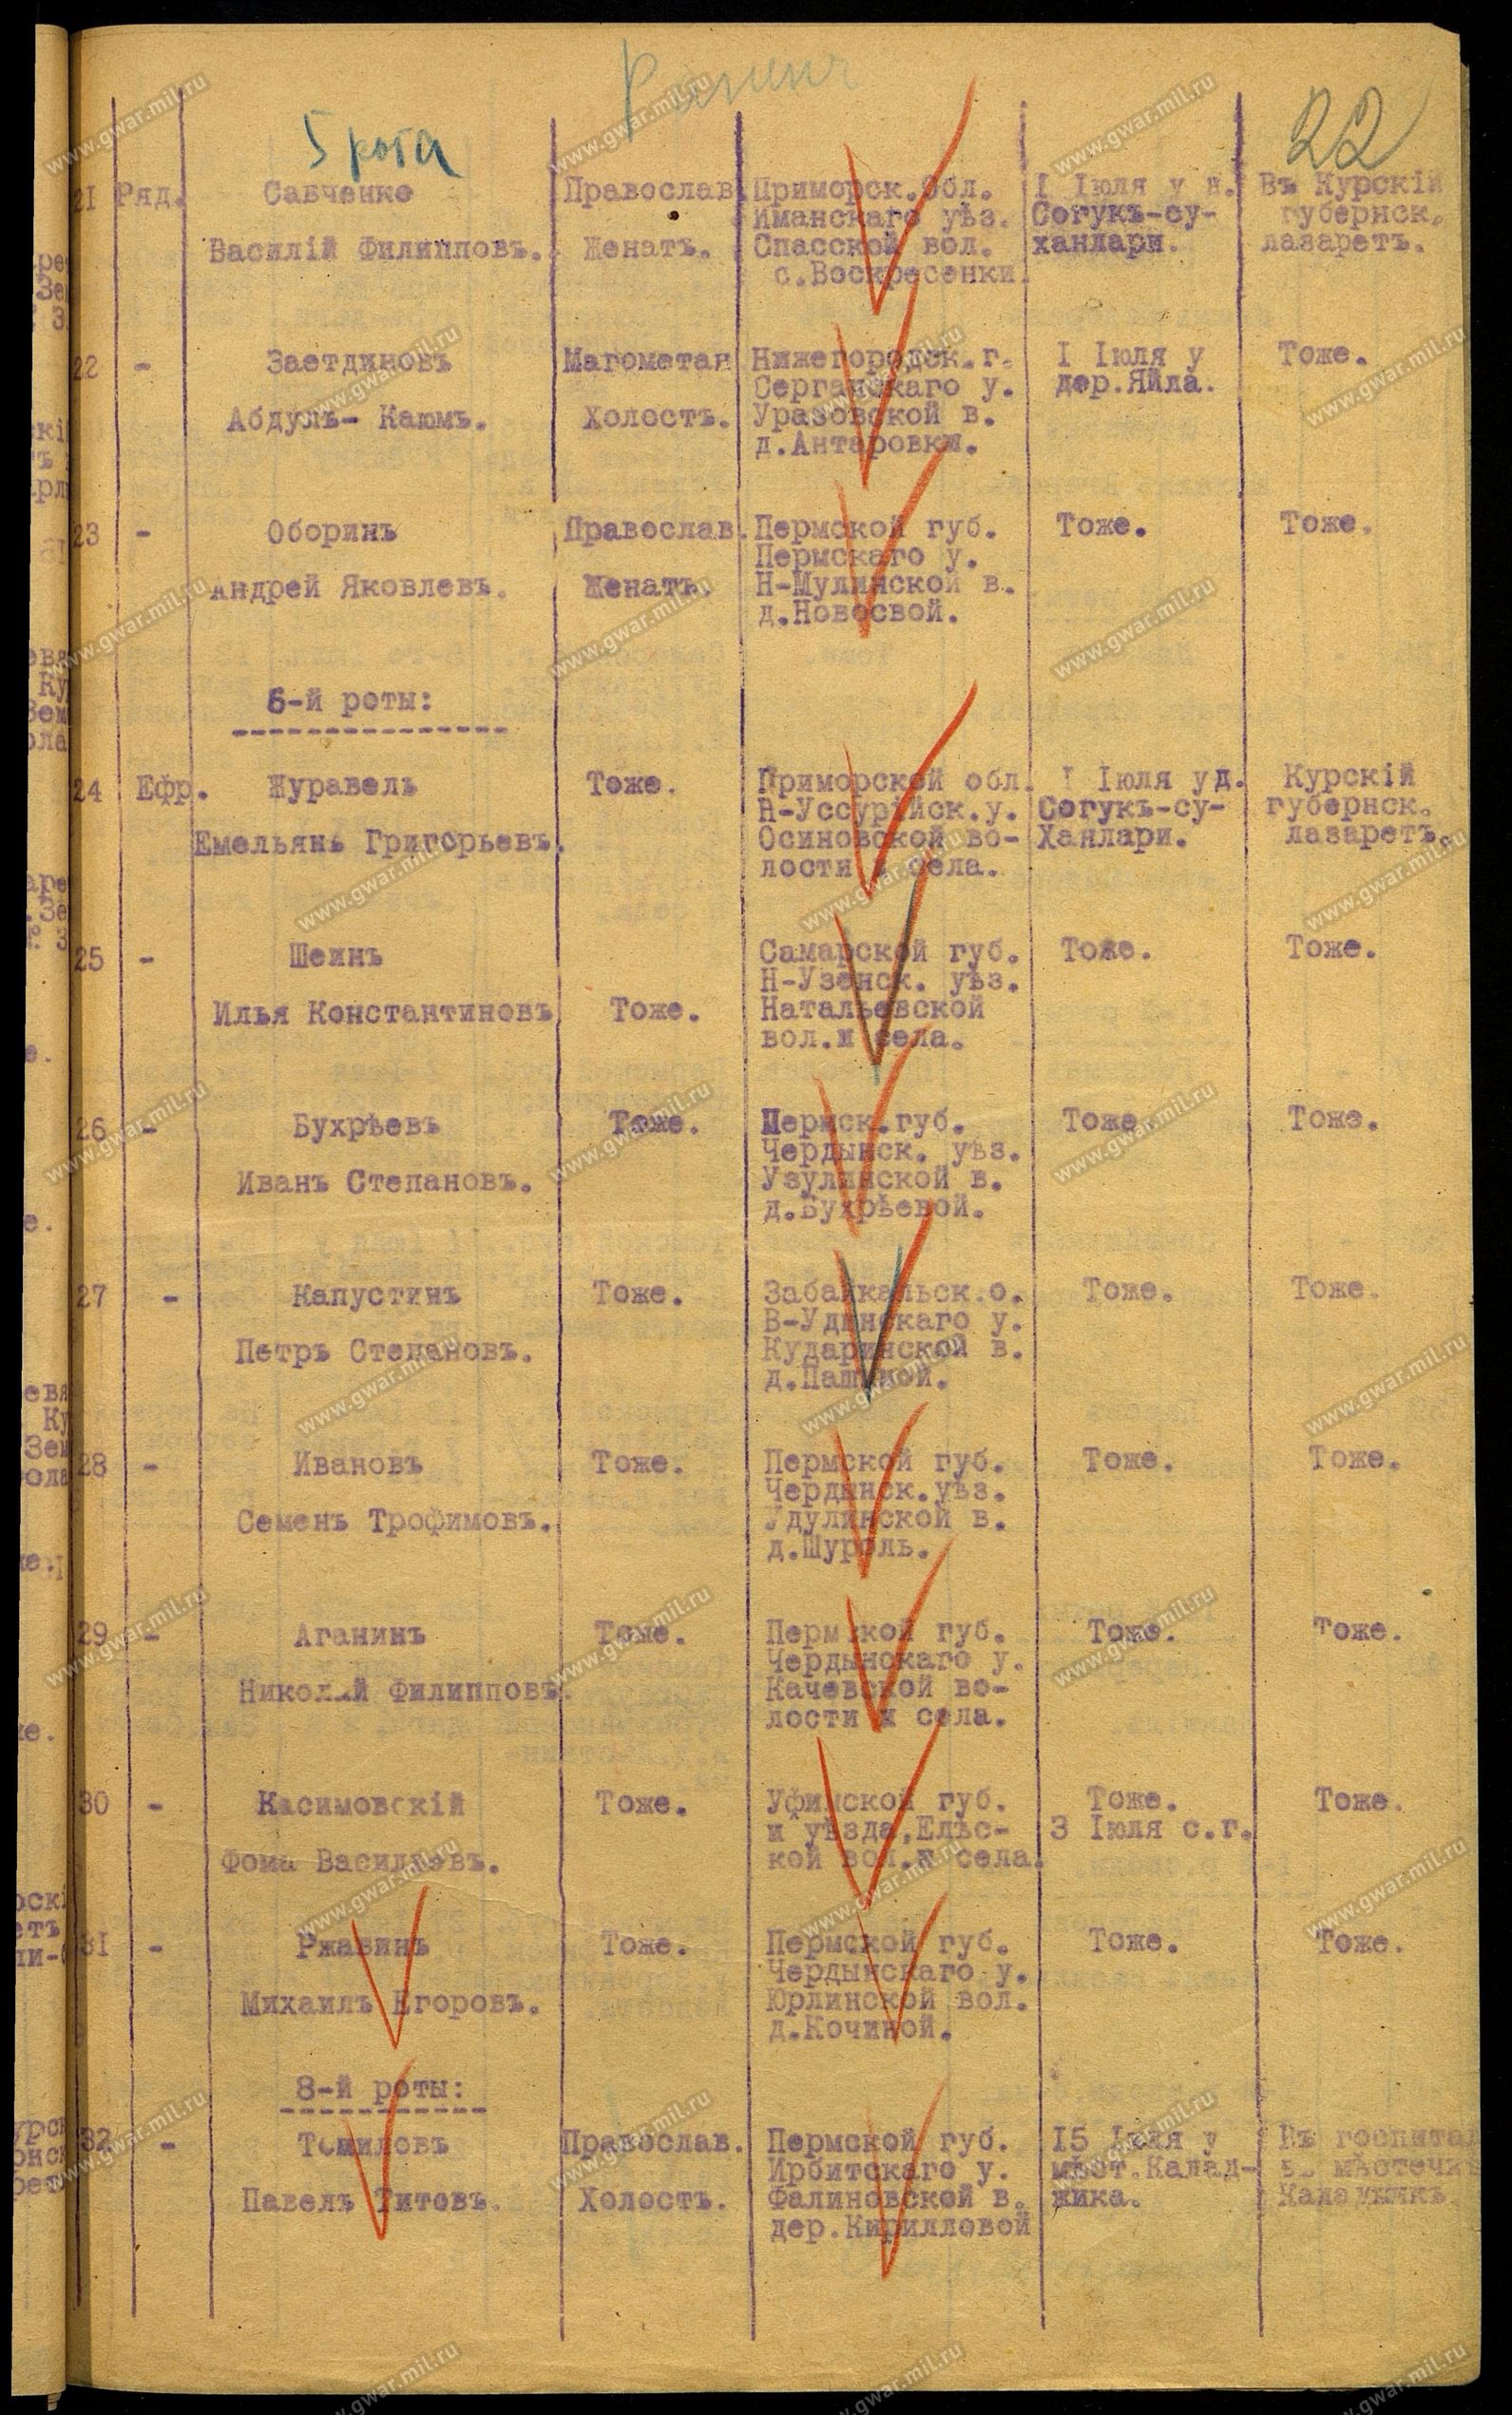 22
5 рота
21 Ряд. Савченко Православ. Приморск.Обл. I Іюля у д. Въ Курскій
Иманскаго уѣз. Согукъ-су- губернск.
Василій Филипповъ. Женатъ. Спасской вол. ханлари. лазаретъ.
с.Воскресенки.
22 - Заетдиновъ Магометан Нижегородск.г. I Іюля у Тоже.
Сергачскаго у. дер.Яйла.
Абдулъ- Каюмъ. Холостъ. Уразовской в.
д.Антаровки.
23 - Оборинъ Православ. Пермской губ. Тоже. Тоже.
Пермскаго у.
Андрей Яковлевъ. Женатъ. Н-Мулинской в.
д.Новосвой.
6-й роты:
24 Ефр. Журавель Тоже. Приморской обл. I Іюля у д. Курскій
Н-Уссурійск.у. Согукъ-су- губернск.
Емельянъ Григорьевъ. Осиновской во- Ханлари. лазаретъ.
лости и села.
25 - Шеинъ Самарской губ. Тоже. Тоже.
Н-Узенск. уѣз.
Илья Константиновъ Тоже. Натальевской
вол.и села.
26 - Бухрѣевъ Тоже. Пермск.губ. Тоже Тоже.
Чердынск. уѣз.
Иванъ Степановъ. Узулинской в.
д.Бухрѣевой.
27 - Капустинъ Тоже. Забайкальск.о. Тоже. Тоже.
В-Удинскаго у.
Петръ Степановъ. Кударинской в.
д.Пашиной.
28 - Ивановъ Тоже. Пермской губ. Тоже. Тоже.
Чердынск.уѣз.
Семенъ Трофимовъ. Удулинской в.
д.Шуроль.
29 - Аганинъ Тоже. Пермской губ. Тоже. Тоже.
Чердынскаго у.
Николай Филипповъ. Качевской во-
лости и села.
30 - Касимовскій Тоже. Уфимской губ. Тоже. Тоже.
и уѣзда,Елѣс- 3 Іюля с.г.
Фома Васильевъ. кой вол.и села.
31 - Ржавинъ Тоже. Пермской губ. Тоже. Тоже.
Чердынскаго у.
Михаилъ Егоровъ. Юрлинской вол.
д.Кочиной.
8-й роты:
32 - Томиловъ Православ. Пермской губ. I5 Іюля у Въ госпитал
Ирбитскаго у. мѣст.Калад- въ мѣстечкѣ
Павелъ Титовъ. Холостъ. Фалиновской в. жика.
дер.Кирилловой
www.gwar.mil.ru